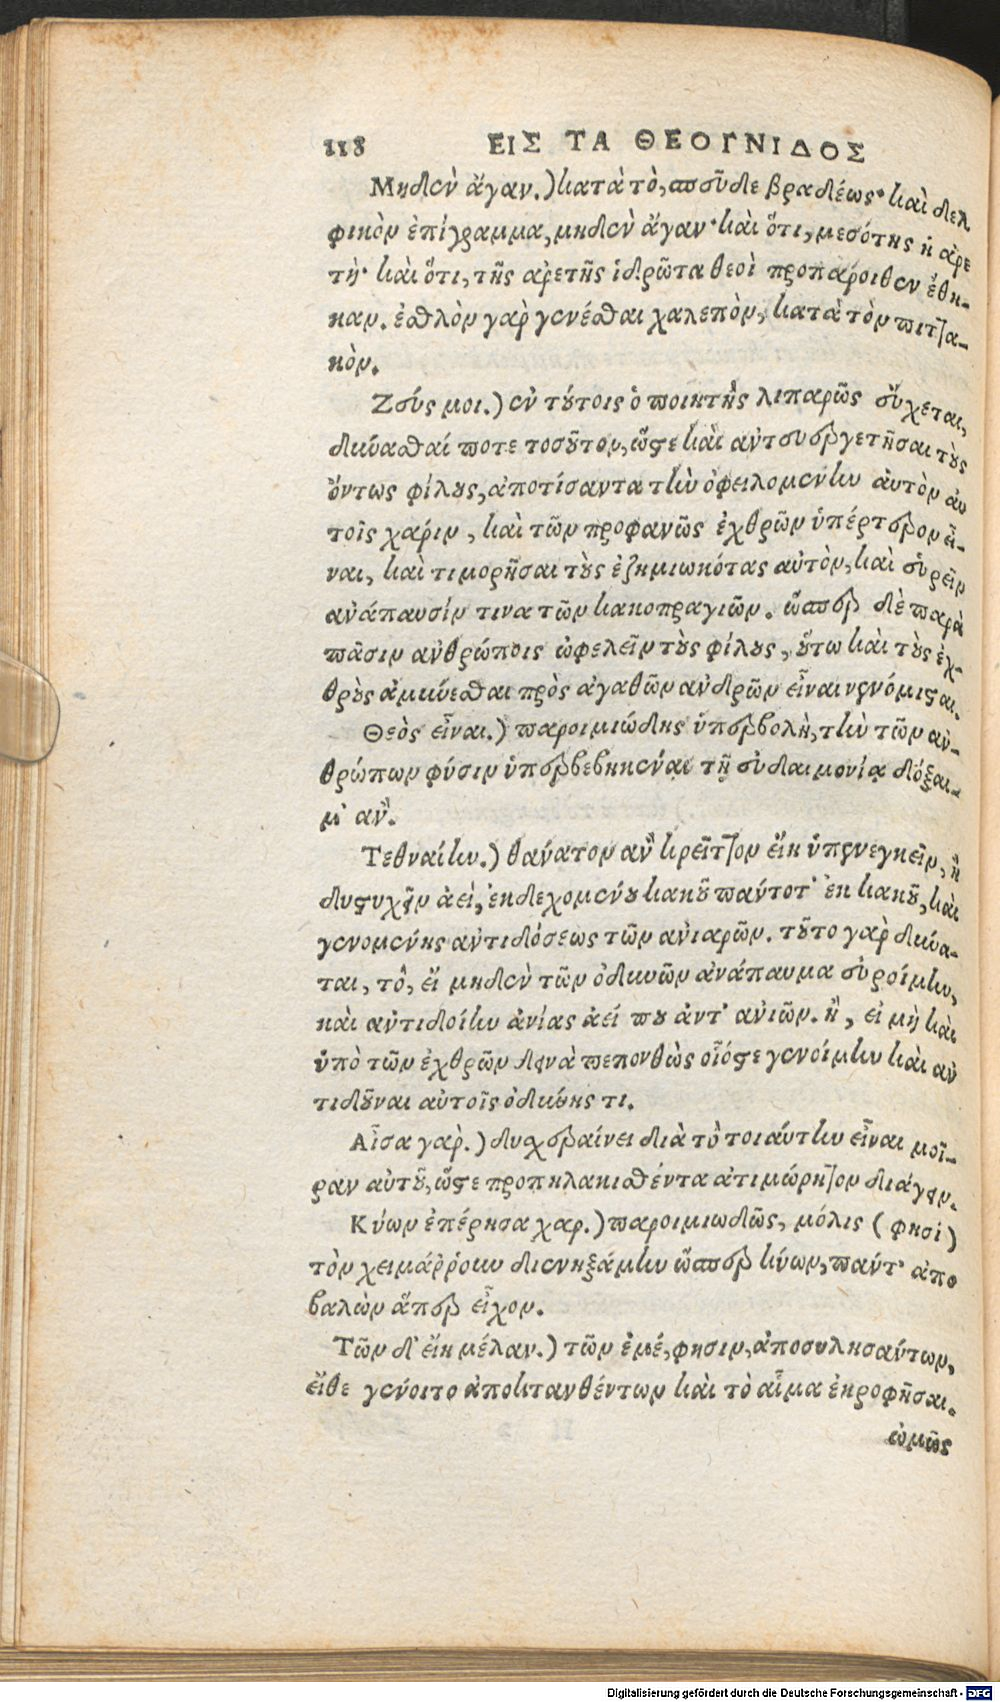 118 ΕΙΣ ΤΑ ΘΕΟΓΝΙΔΟΣ
Μηδὲν ἄγαν.) κατὰ τὸ, σπεῦδε βραδέως· καὶ δελ
φικὸν ἐπίγραμμα, μηδὲν ἄγαν· καὶ ὅτι, μεσότης ἡ ἀρε
τή· καὶ ὅτι, τῆς ἀρετῆς ἱδρῶτα θεοὶ προπάροιθεν ἔθη-
καν. ἐσθλὸν γὰρ γενέσθαι χαλεπὸν, κατὰ τὸν πιττα-
κὸν.
Ζεύς μοι.) ἐν τούτοις ὁ ποιητὴς λιπαρῶς εὔχεται,
δύνασθαί ποτε τοσοῦτον, ὥστε καὶ ἀντευεργετῆσαι τοὺς
ὄντως φίλους, ἀποτίσαντα τὴν ὀφειλομένην αὐτὸν αὐ
τοῖς χάριν, καὶ τῶν προφανῶς ἐχθρῶν ὑπέρτερον εἶ-
ναι, καὶ τιμορῆσαι τοὺς ἐζημιωκότας αὐτὸν, καὶ εὑρεῖν
ἀνάπαυσίν τινα τῶν κακοπραγιῶν. ὥσπερ δὲ παρὰ
πᾶσιν ἀνθρώποις ὠφελεῖν τοὺς φίλους, οὕτω καὶ τοὺς ἐχ-
θροὺς ἀμύνεσθαι πρὸς ἀγαθῶν ἀνδρῶν εἶναι νενόμισται.
Θεὸς εἶναι.) παροιμιώδης ὑπερβολὴ, τὴν τῶν ἀν-
θρώπων φύσιν ὑπερβεβηκέναι τῇ εὐδαιμονίᾳ δόξαι-
μ' ἂν.
Τεθναίην.) θάνατον ἂν κρεῖττον εἴη ὑπενεγκεῖν, ἢ
δυστυχεῖν ἀεί, ἐκδεχομένου κακοῦ παντοτ' ἐκ κακοῦ, καὶ
γενομένης ἀντιδόσεως τῶν ἀνιαρῶν. τοῦτο γὰρ δύνα-
ται, τό, εἴ μηδὲν τῶν ὀδυνῶν ἀνάπαυμα εὑροίμην,
καὶ ἀντιδοίην ἀνίας ἀεί που ἀντ' ἀνιῶν. ἢ, εἰ μὴ καὶ
ὑπὸ τῶν ἐχθρῶν δεινὰ πεπονθὼς οἷός τε γενοίμην καὶ ἀν
τιδοῦναι αὐτοῖς ὀδύνης τι.
Αἶσα γὰρ.) δυσχεραίνει διὰ τὸ τοιαύτην εἶναι μοῖ-
ραν αὐτοῦ, ὥστε προπηλακισθέντα ἀτιμώρητον διάγειν.
Κύων ἐπέρησα χαρ.) παροιμιωδῶς, μόλις (φησὶ)
τὸν χειμάῤῥουν διενηξάμην ὥσπερ κύων, πάντ' ἀπο
βαλὼν ἅπερ εἶχον.
Τῶν δ' εἴη μέλαν.) τῶν ἐμέ, φησιν, ἀποσυλησάντων,
εἴθε γένοιτο ἀποκτανθέντων καὶ τὸ αἷμα ἐκροφῆσαι.
ὠμῶς
Digitalisierung gefördert durch die Deutsche Forschungsgemeinschaft - DFG